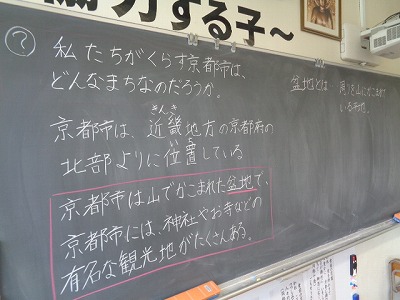 力する子～
?
私たちがくらす京都市は、
どんなまちなのだろうか。
きんき
京都市は、近畿地方の京都府の
いち
北部よりに位置している
京都市は山でかこまれた盆地で、
京都市には、神社やお寺などの
有名な観光地がたくさんある。
盆地とは 周りを山にかこまれて
いる平地。